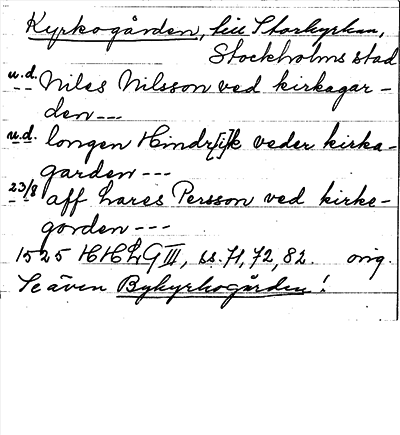 Kyrkogården, till Storkyrkan,
Stockholms stad
u.d. Niles Nilsson ved kirkagar-
den---
u.d. longen Hindr[i]k veder kirka-
garden---
23/8 aff Lares Persson ved kirke-
gorden---
1525 HHLG III, ss. 71, 72, 82. orig.
Se även Bykyrkogården!